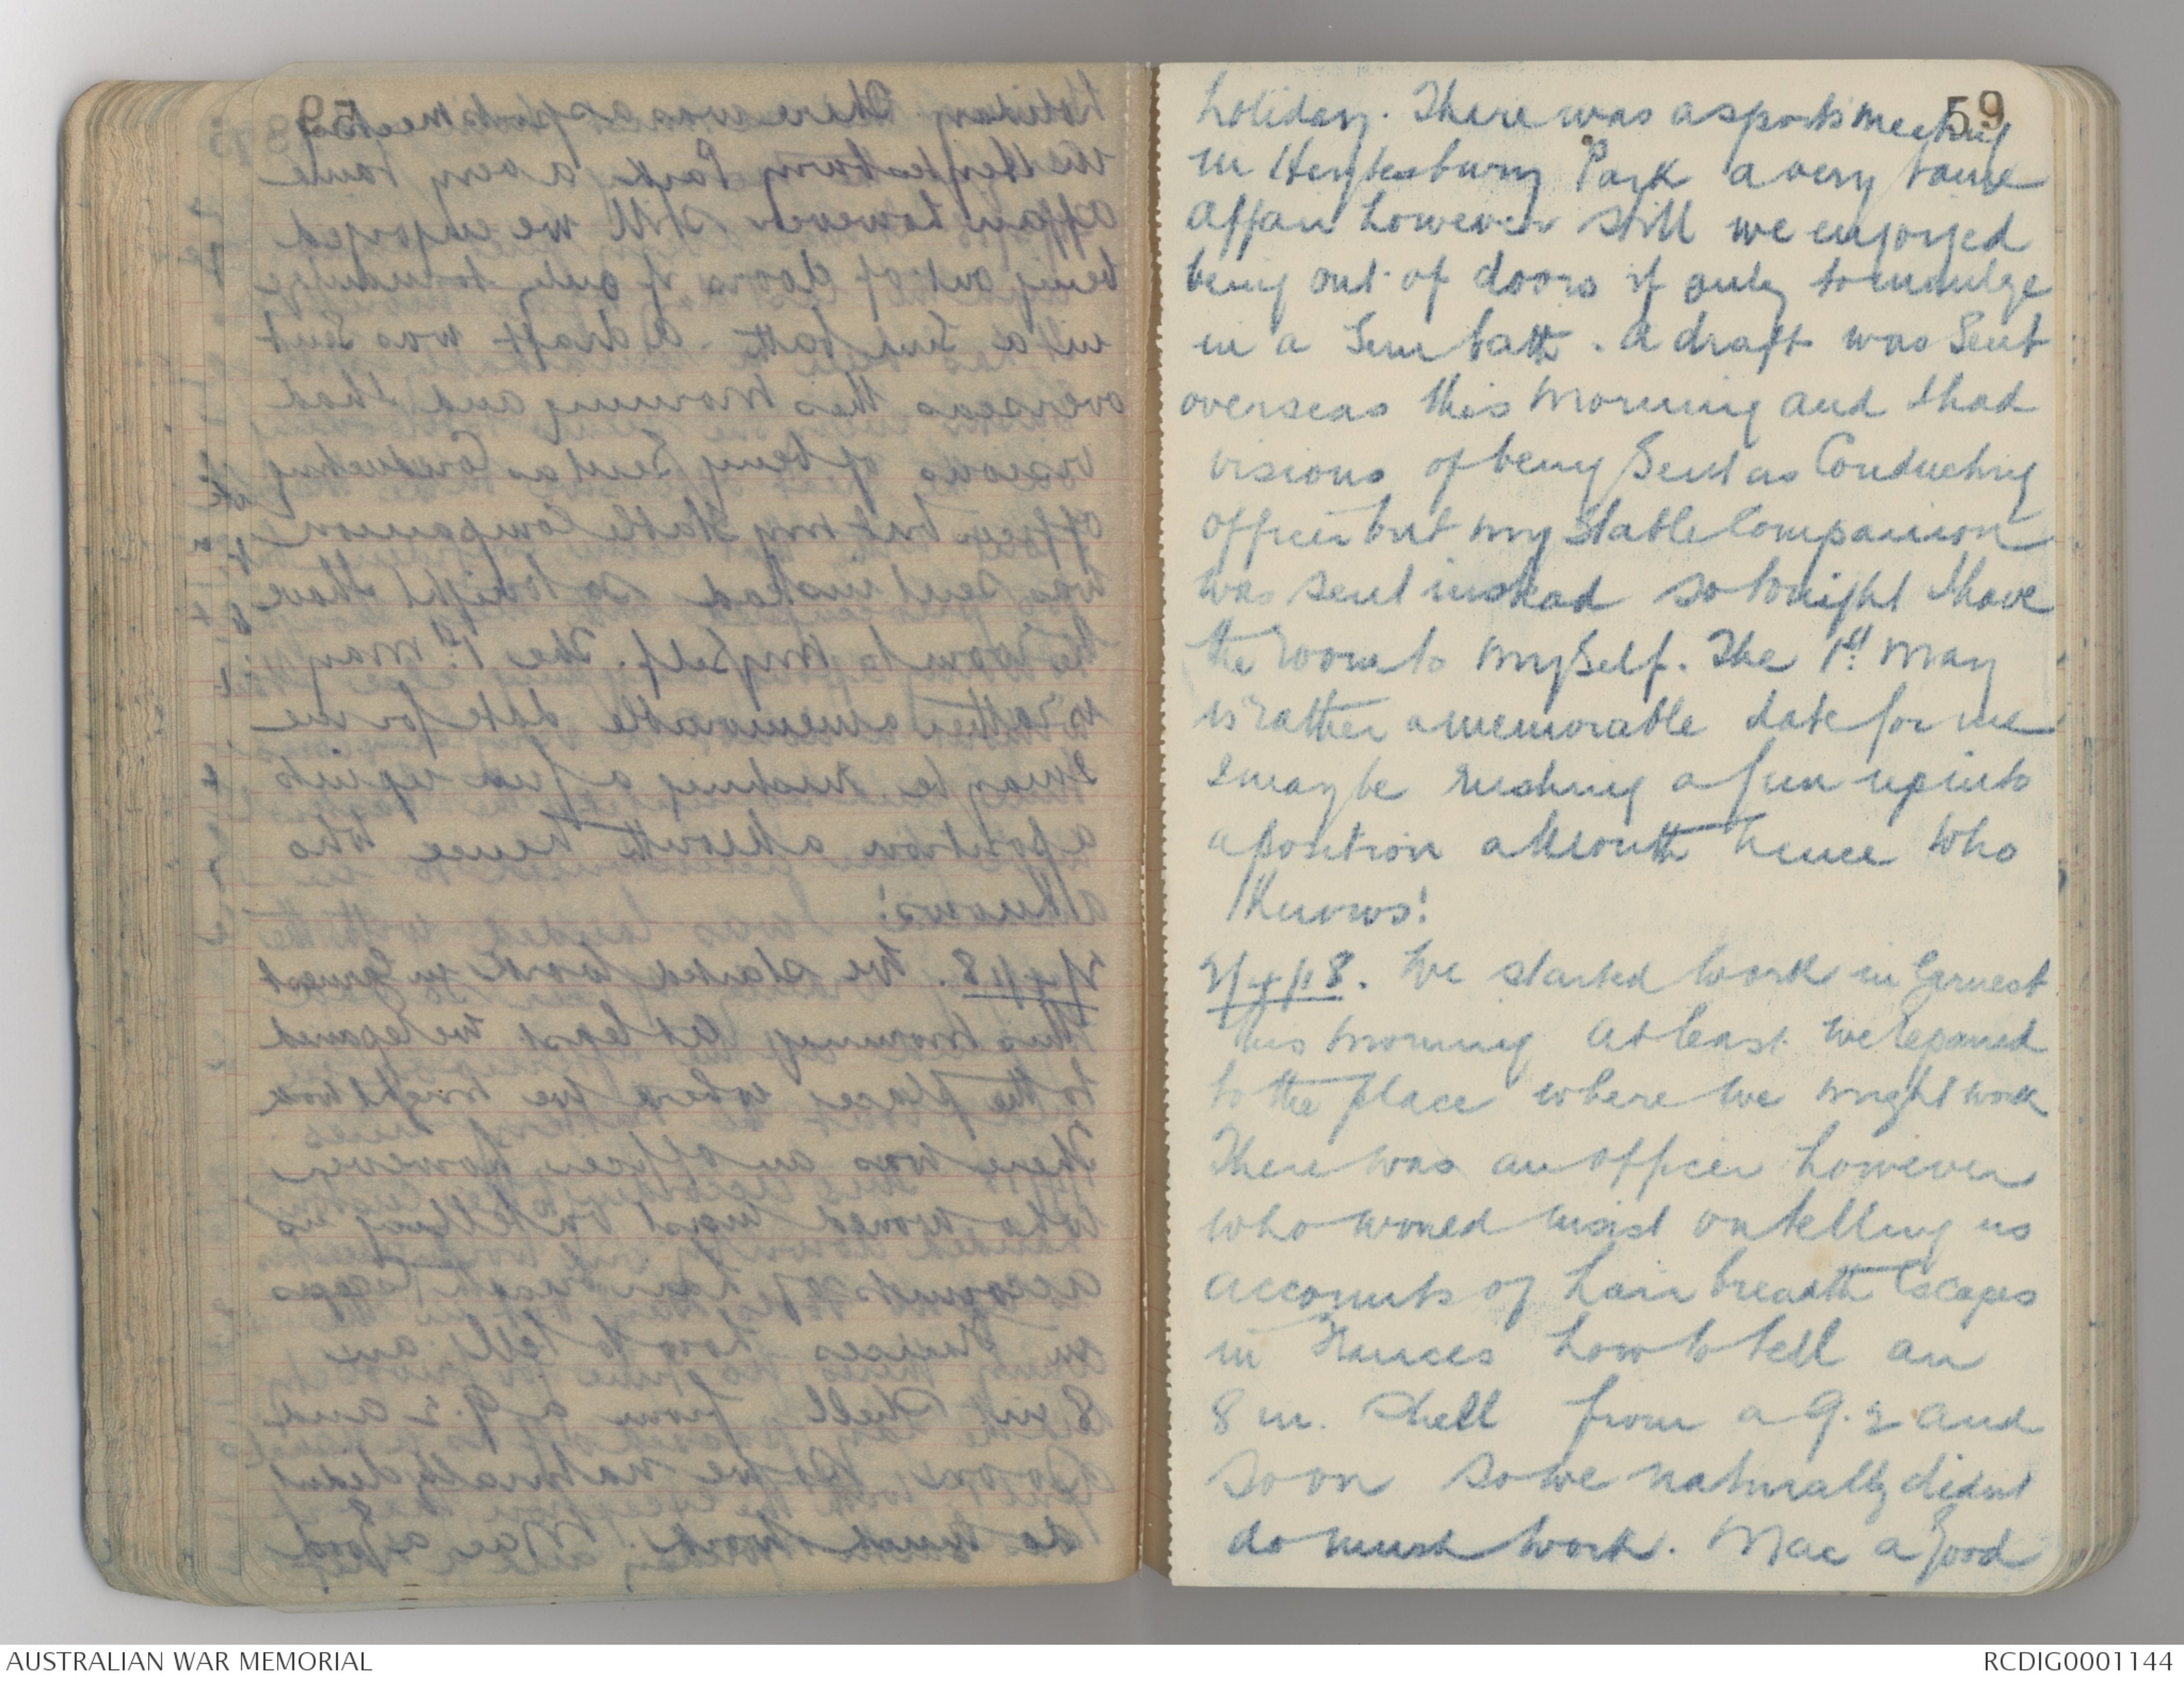 59
holiday. There was a sports meeting
in Heytesbury Park a very tame
affair however still we enjoyed
being out of doors if only to indulge
in a Sun bath. A draft was Sent
overseas this morning and I had
visions of being Sent as Conducting
Officer but my Stable Companion
was sent instead so tonight I have
the room to myself. The 1st May
is rather a memorable date for me
I may be rushing a gun up into
a position a Month hence Who
Knows!
We started work in Earnest
this morning at least we repaired
to the place where we might work
There was an officer however
who would insist on telling us
accounts of hair breadth Escapes
in France how to tell an
8 in. Shell from a 9.2 and
so on so we naturally didnt
do much work. Mac a good
AUSTRALIAN WAR MEMORIAL
RCDIG0001144